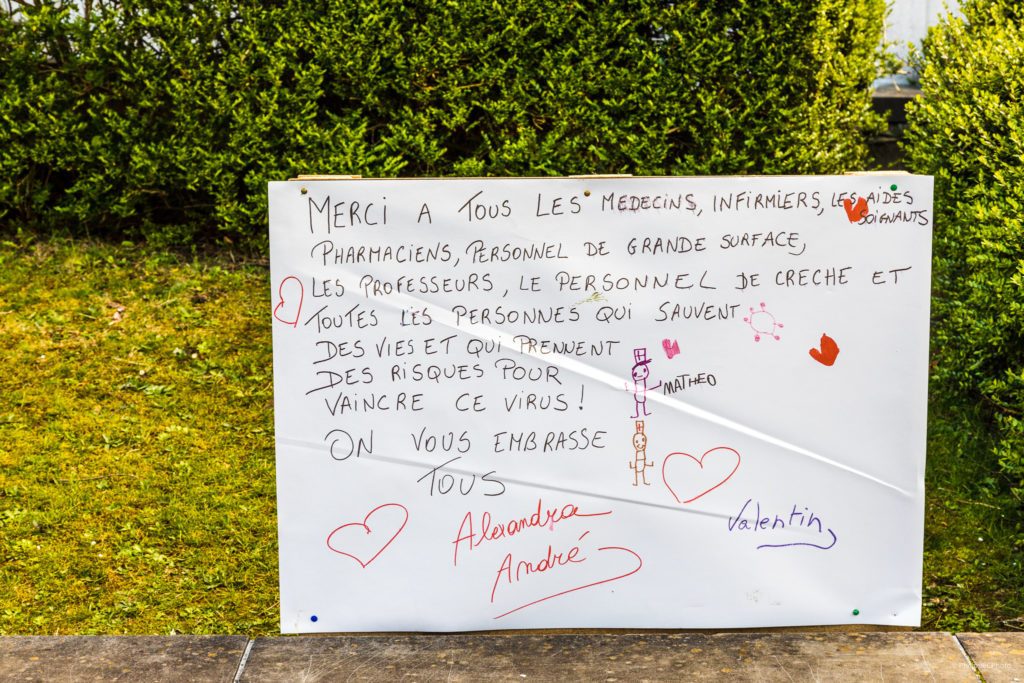 MERCI A TOUS LES MEDECINS, INFIRMIERS, LES AIDES
SOIGNANTS
PHARMACIENS, PERSONNEL DE GRANDE SURFACE,
LES PROFESSEURS, LE PERSONNEL DE CRECHE ET
TOUTES LES PERSONNES QUI SAUVENT
DES VIES ET QUI PRENNENT
DES RISQUES POUR
VAINCRE CE VIRUS !
MATHEO
ON VOUS EMBRASSE
TOUS
Alexandra
André
Valentin